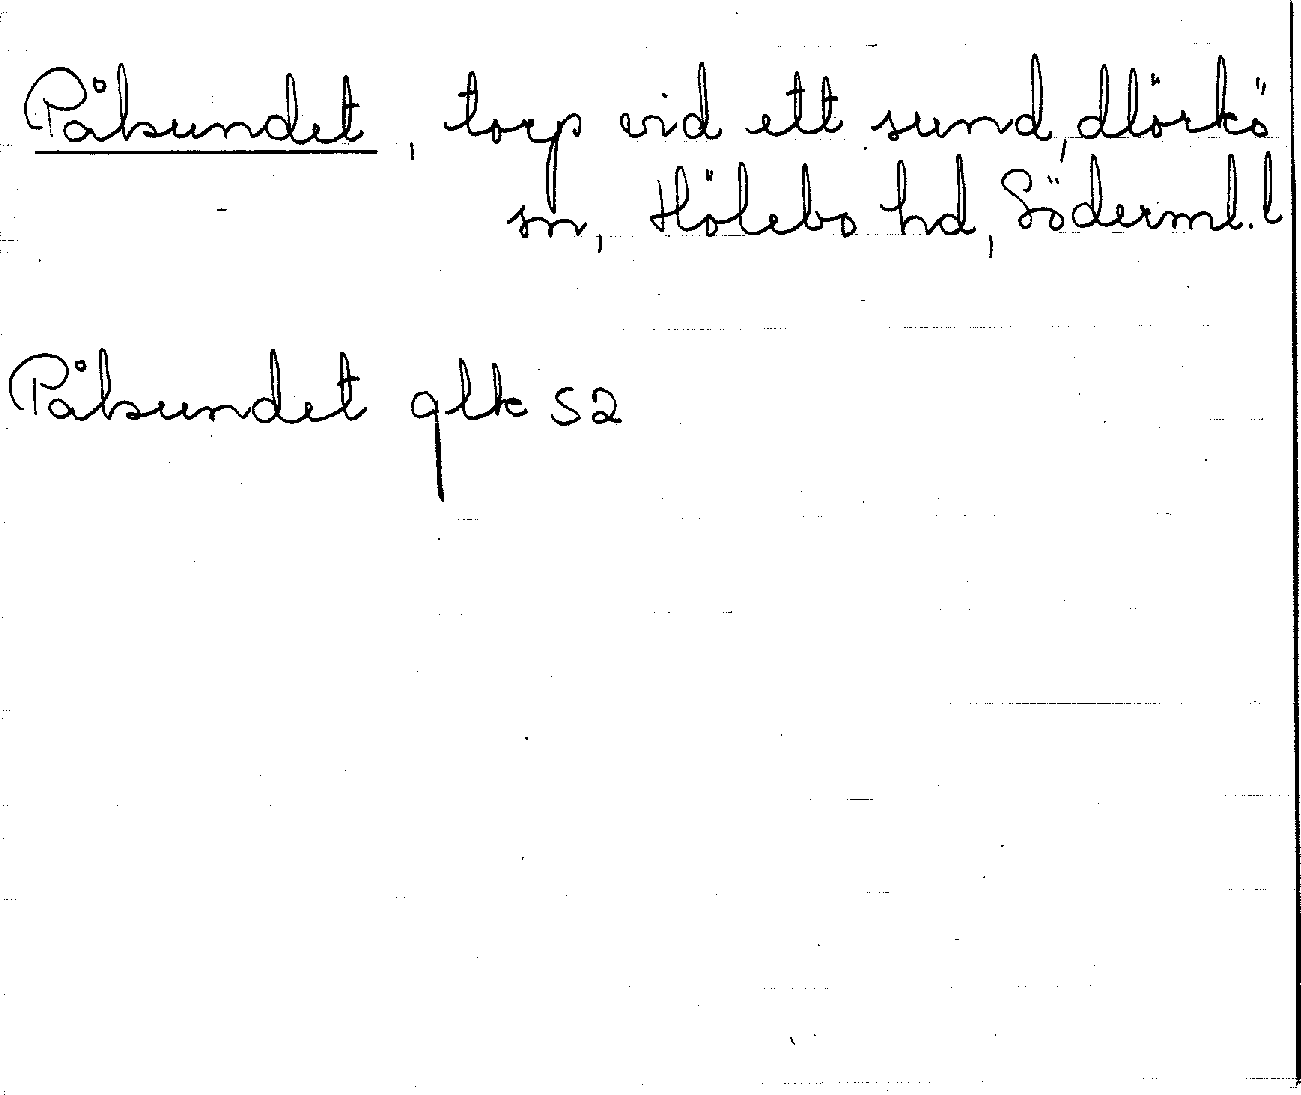 Påksundet, torp vid ett sund, Mörkö
sn, Hölebo hd, Söderml. l
Påksundet glk S2